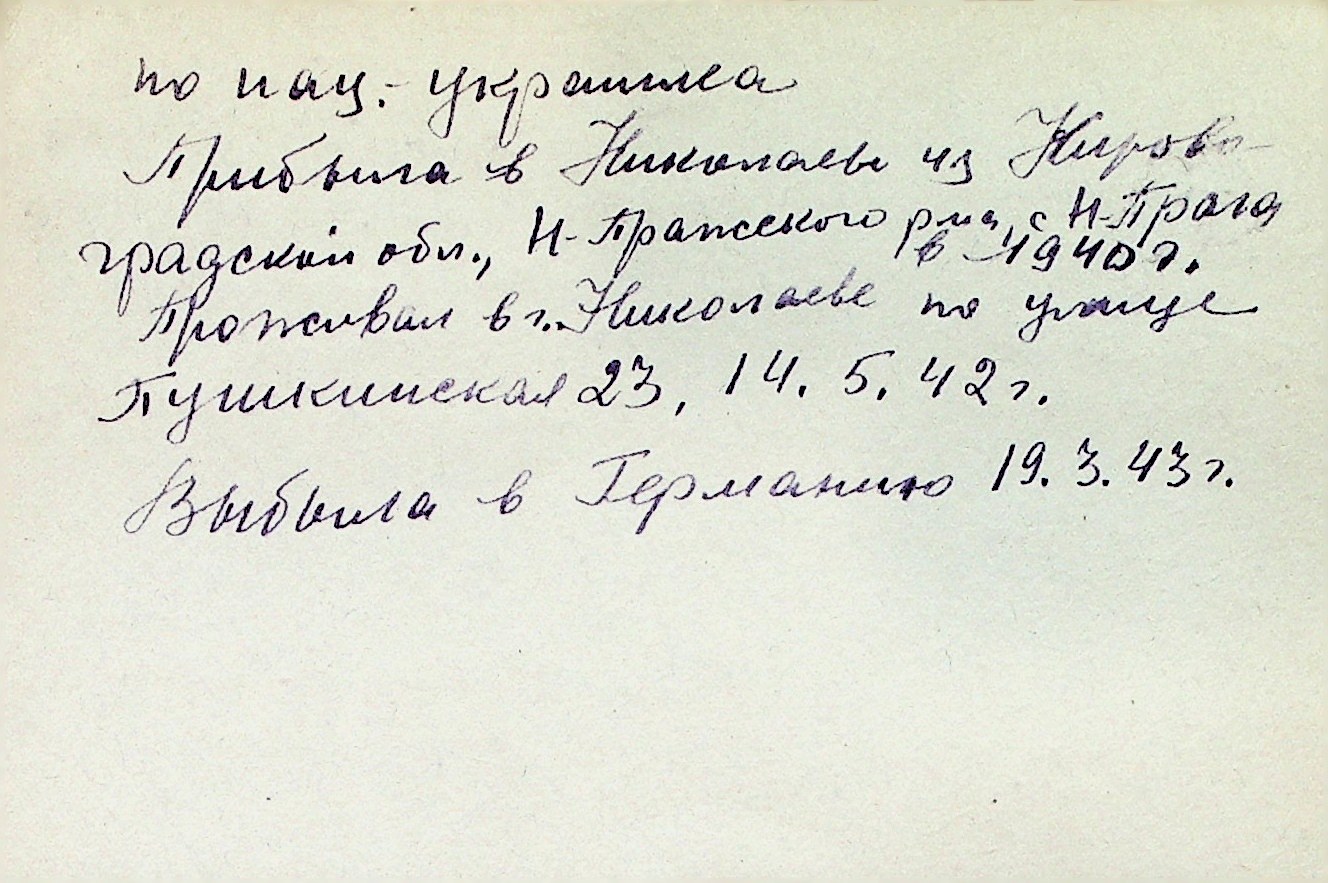 по нац.- украинка
Прибыла в Николаев из Кирово-
градской обл., Н-Пражского р-на, с Н-Прага
в 1940 г.
Проживал в г. Николаеве по улице
Пушкинская 23, 14. 5. 42 г.
Выбыла в Германию 19. 3. 43 г.